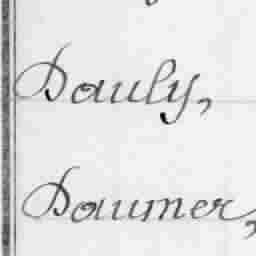 Dauly,
Daumer,